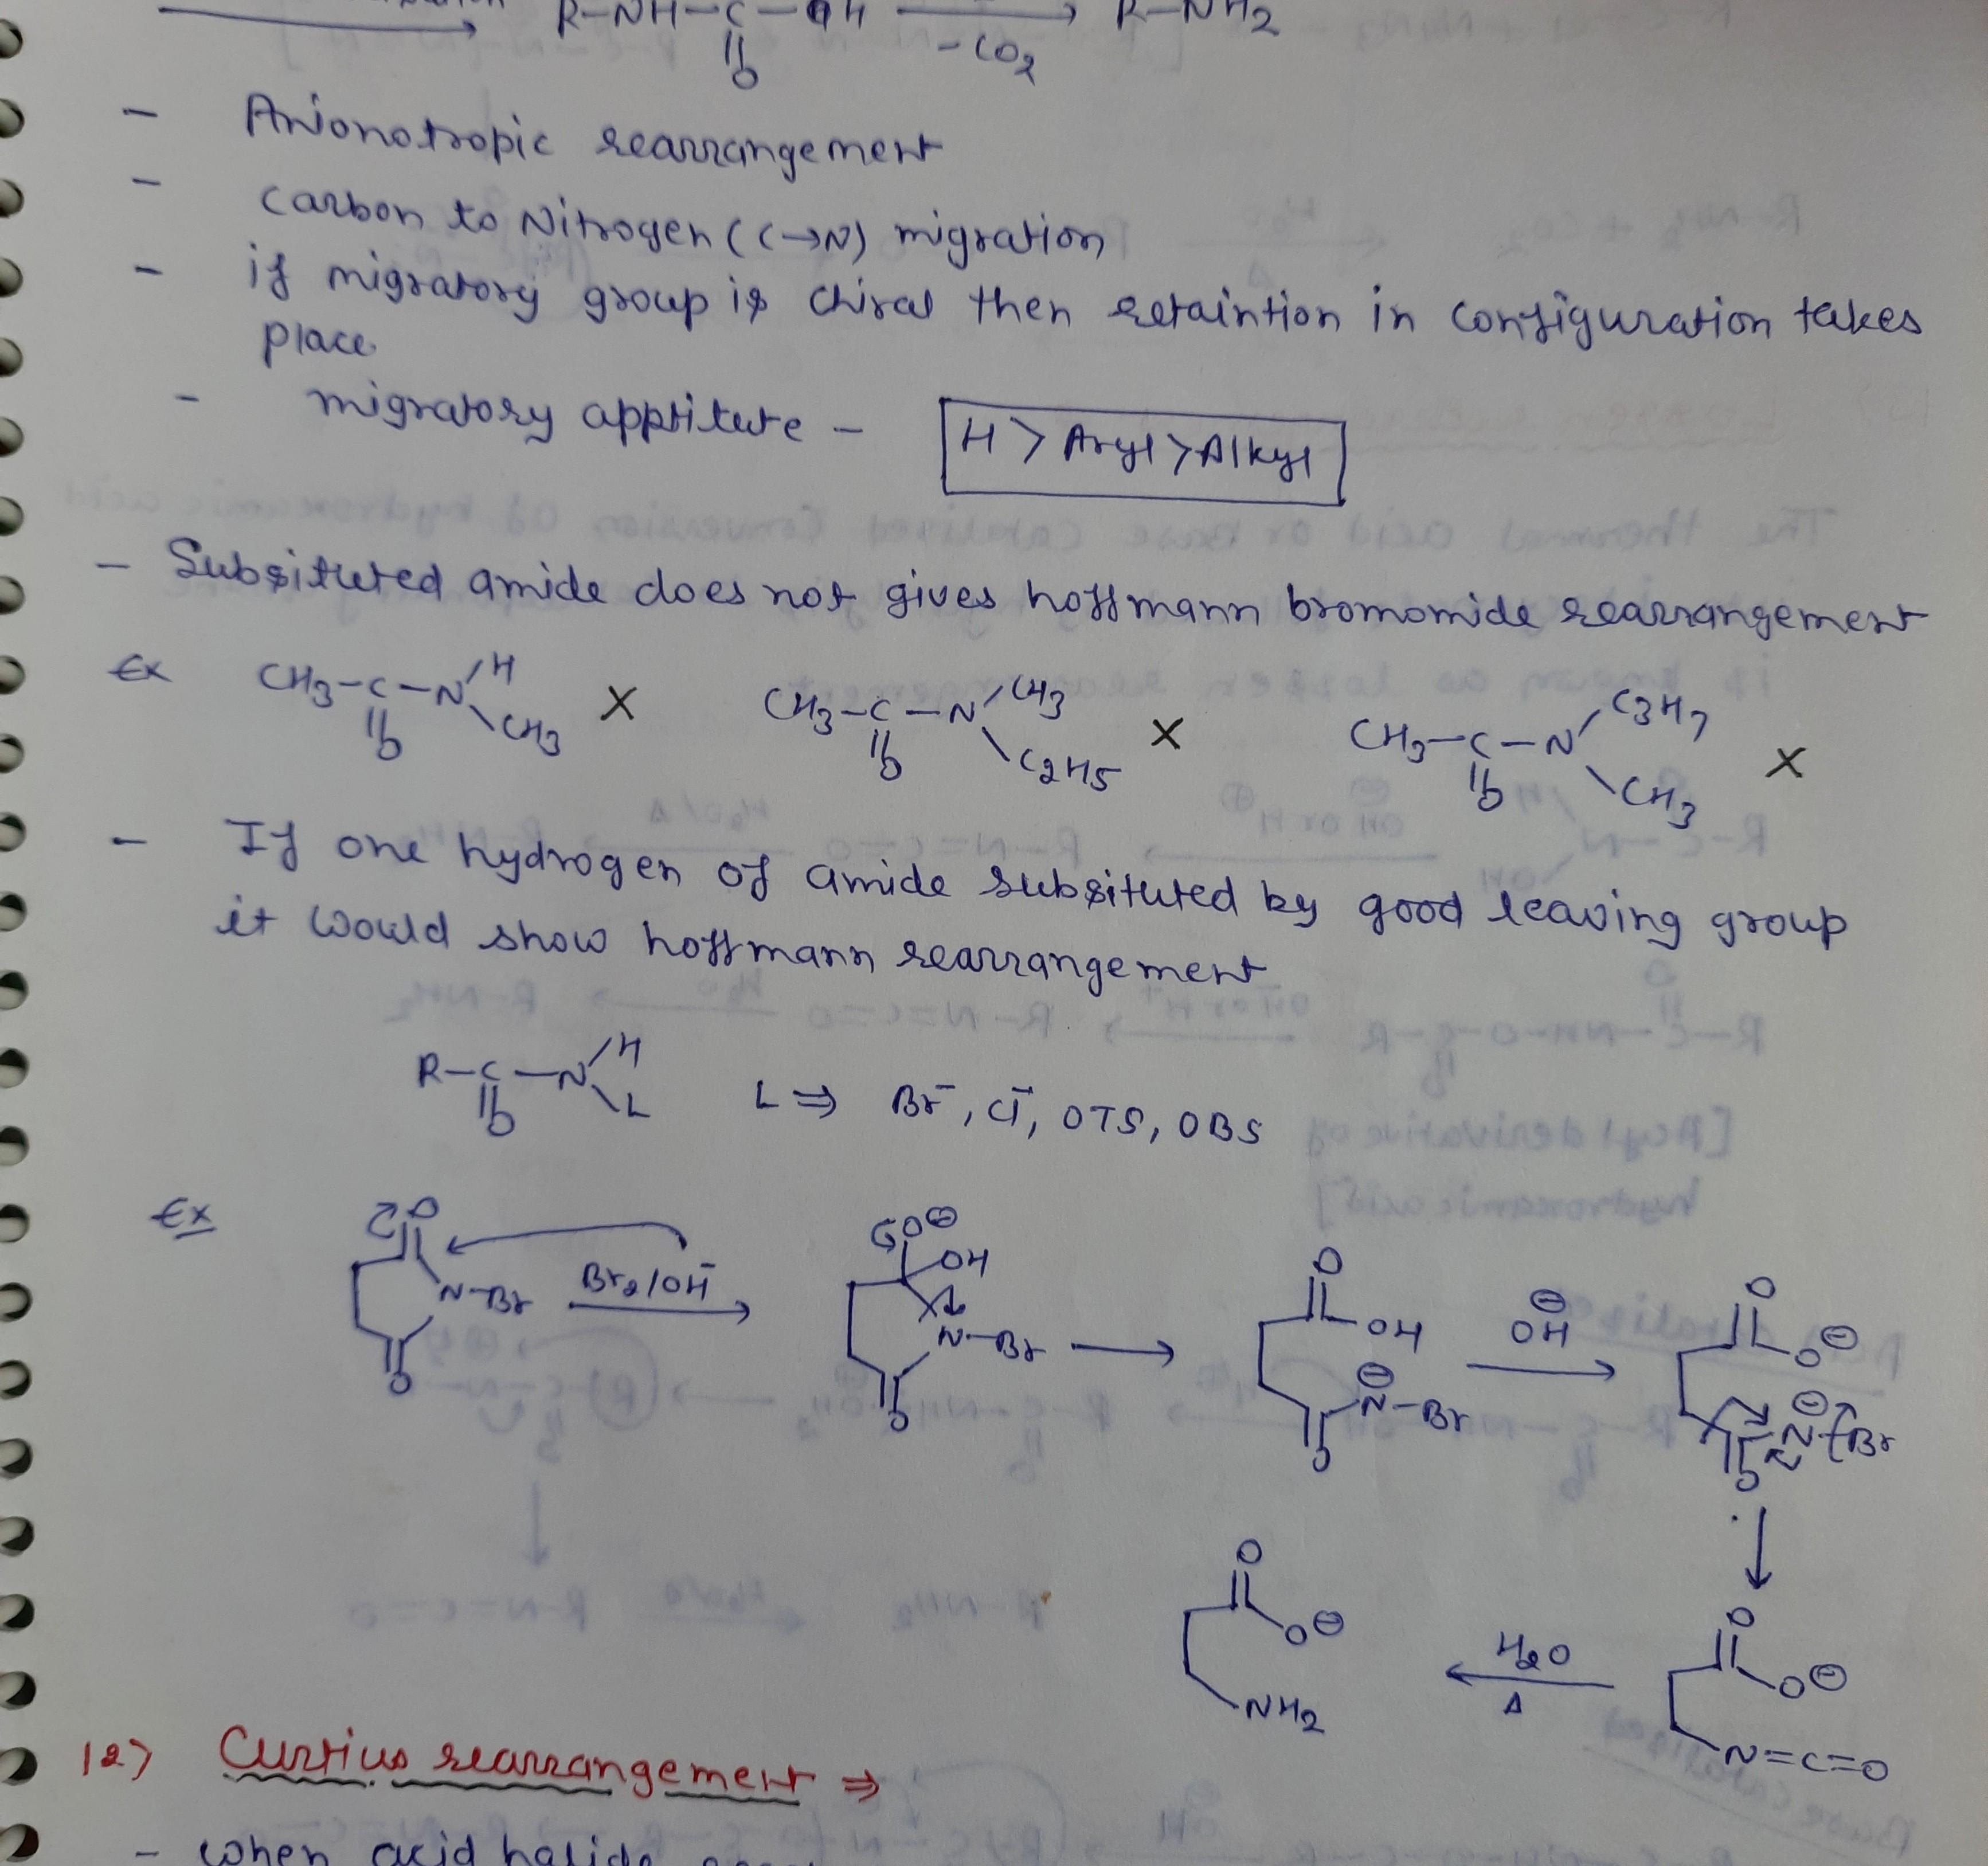 R-NH-C-OH → R-NH2
|| O -CO2
- Anionotropic rearrangement
- Carbon to Nitrogen (C→N) migration
- if migratory group is chiral then retaintion in configuration takes
place
- migratory apptitute - H > Aryl > Alkyl
- Subsituted amide does not gives hoffmann bromomide rearrangement
Ex CH3-C-N H CH3 || O X CH3-C-N CH3 C2H5 || O X CH3-C-N C3H7 CH3 || O X
- If one hydrogen of amide subsituted by good leaving group
it would show hoffmann rearrangement
R-C-N H L || O L ⇒ Br⁻, Cl⁻, OTS, OBS
Ex O N-Br O Br2/OH⁻ → O⊖ OH N-Br O → O OH ⊖ N-Br O ⊖ OH → O O⊖ ⊖ N-Br O
↓
O O⊖ NH2 ← H2O Δ O O⊖ N=C=O
12) Curtius rearrangement ⇒
- when acid halide